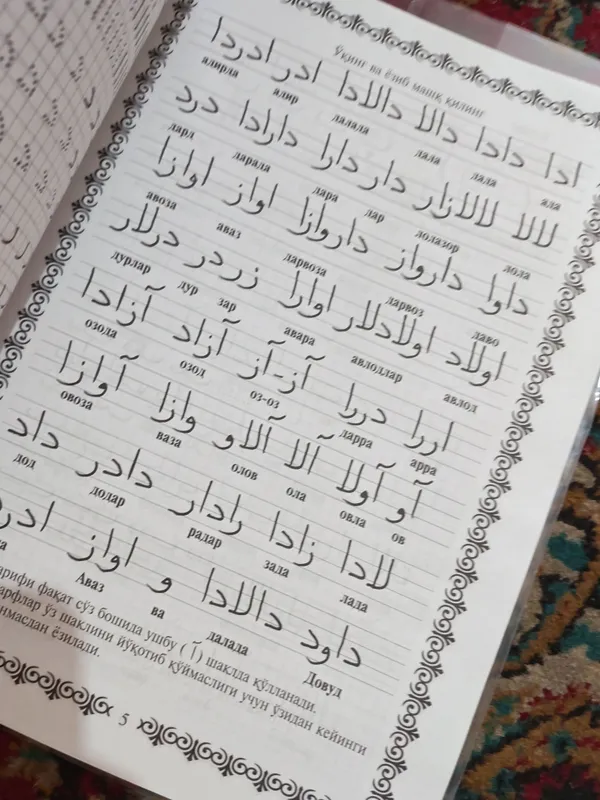 Ўқинг ва ёзиб машқ қилинг
ادا دادا دالا دالادا ادر ادردا
адирда адир далада дала дада ада
لالا لالازار دار دارا دارادا درد
дард дарада дара дар лолазор лола
داوا دارواز داروازا اواز اوازا
авоза аваз дарвоза дарвоз даво
اولاد اولادلار اوارا زر در درلار
дурлар дур зар авара авлодлар авлод
اررا دررا آز-آز آزاد آزادا
озода озод оз-оз дарра арра
آو آولا آلا آلاو وازا آوازا
овоза ваза олов ола овла ов
لادا زادا رادار دادر داد
дод додар радар зада лада
داود دالادا و اواز
Аваз ва далада Довуд
фақат сўз бошида ушбу ( آ ) шаклда қўлланади.
арфлар ўз шаклини йўқотиб қўймаслиги учун ўзидан кейинги
нмасдан ёзилади.
5